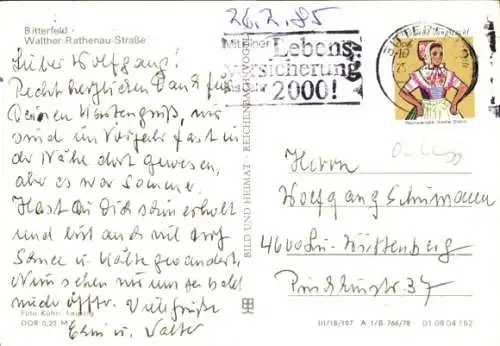 26.2.85
Bitterfeld
Walther-Rathenau-Straße
Mit einer Lebens-
versicherung
2000!
BITTERFELD
Lieber Wolfgang!
Recht herzlichen Dank für
Deinen Kartengruß, wir
sind im Vorjahr fast in
der Nähe dort gewesen,
aber es war Sommer.
Hast Du Dich schön erholt
und bist auch mit auf
Schnee u. Kälte gewandert.
Nun sehen wir uns ja bald
mal öfter. Viele Grüße
Erni u. Walter
Foto Kühn, Leipzig
DDR 0,20 M
BILD UND HEIMAT · REICHENBACH (VOGTL)
Herrn
Wolfgang Schumann
4600 Lu.-Wittenberg
37
III/18/197 A 1/B 766/78 01 08 04 152